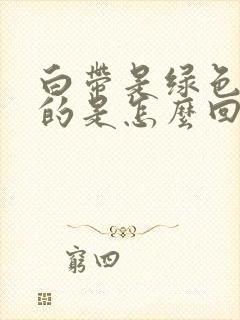 白带是绿色
的是怎麼回
窮四